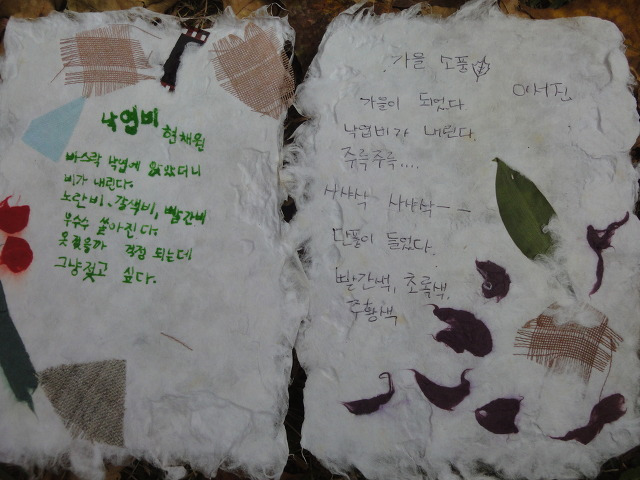 낙엽비
현채원
바스락 낙엽에 앉았더니
비가 내린다.
노란비, 갈색비, 빨간비
우수수 쏟아진다.
옷 젖을까 걱정 되는데
그냥 젖고 싶다.
가을 소풍
이서진
가을이 되었다
낙엽비가 내린다.
주륵주륵....
사사삭 사사삭--
단풍이 들었다.
빨간색, 초록색,
주황색